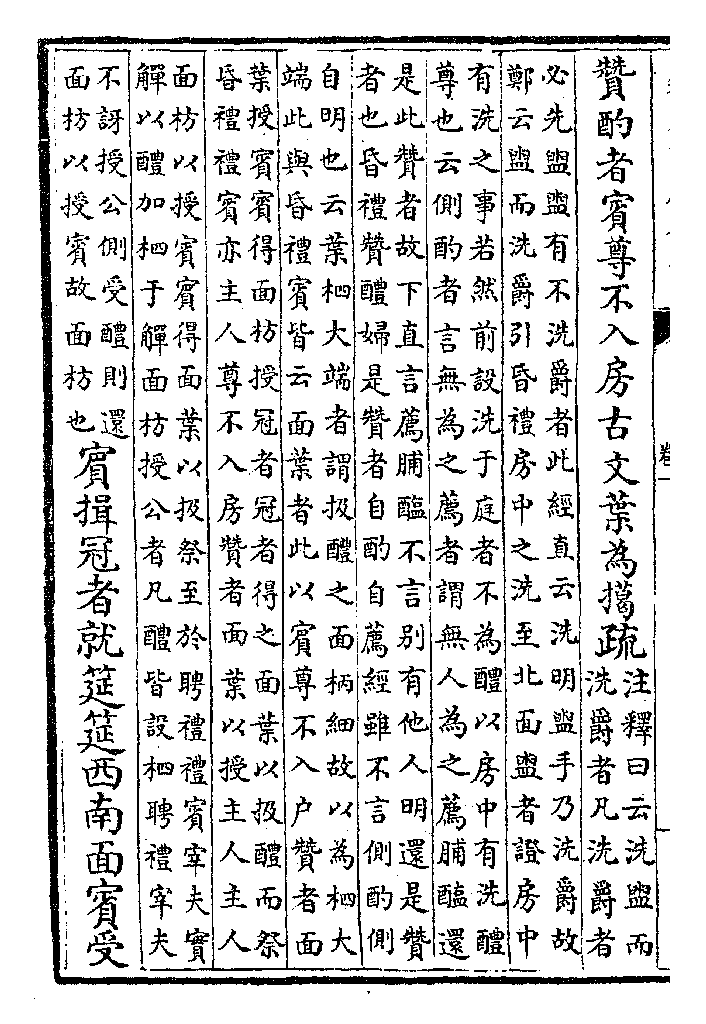 贊酌者賓尊不入房古文葉為擖疏
注釋曰云洗盥而
洗爵者凡洗爵者
必先盥盥有不洗爵者此經直云洗明盥手乃洗爵故
鄭云盥而洗爵引昏禮房中之洗至北面盥者證房中
有洗之事若然前設洗于庭者不為醴以房中有洗醴
尊也云側酌者言無為之薦者謂無人為之薦脯醢還
是此贊者故下直言薦脯醢不言別有他人明還是贊
者也昏禮贊醴婦是贊者自酌自薦經雖不言側酌側
自明也云葉柶大端者謂扱醴之面柄細故以為柶大
端此與昏禮賓皆云面葉者此以賓尊不入户贊者面
葉授賓賓得面枋授冠者冠者得之面葉以扱醴而祭
昏禮禮賓亦主人尊不入房贊者面葉以授主人主人
面枋以授賓賓得面葉以扱祭至於聘禮禮賓宰夫實
觶以醴加柶于觶面枋授公者凡醴皆設柶聘禮宰夫
不訝授公側受醴則還
面枋以授賓故面枋也
賓揖冠者就筵筵西南面賓受